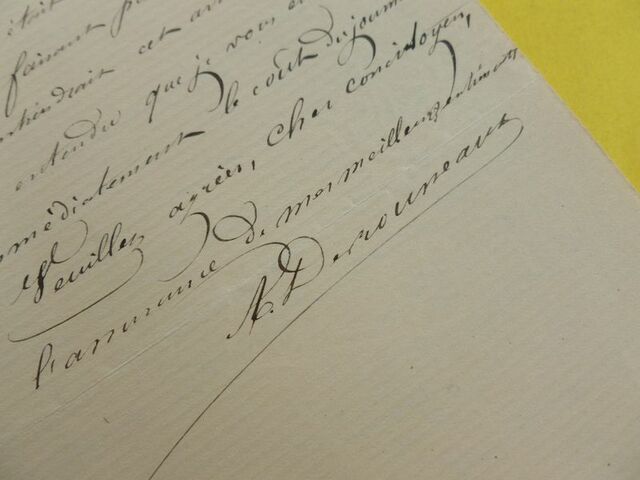 était
faisant
cet
entendu que je vous en
immédiatement le coût du journal
Veuillez agréer, cher concitoyen,
l'assurance de mes meilleurs sentiments
A. Derouneaux